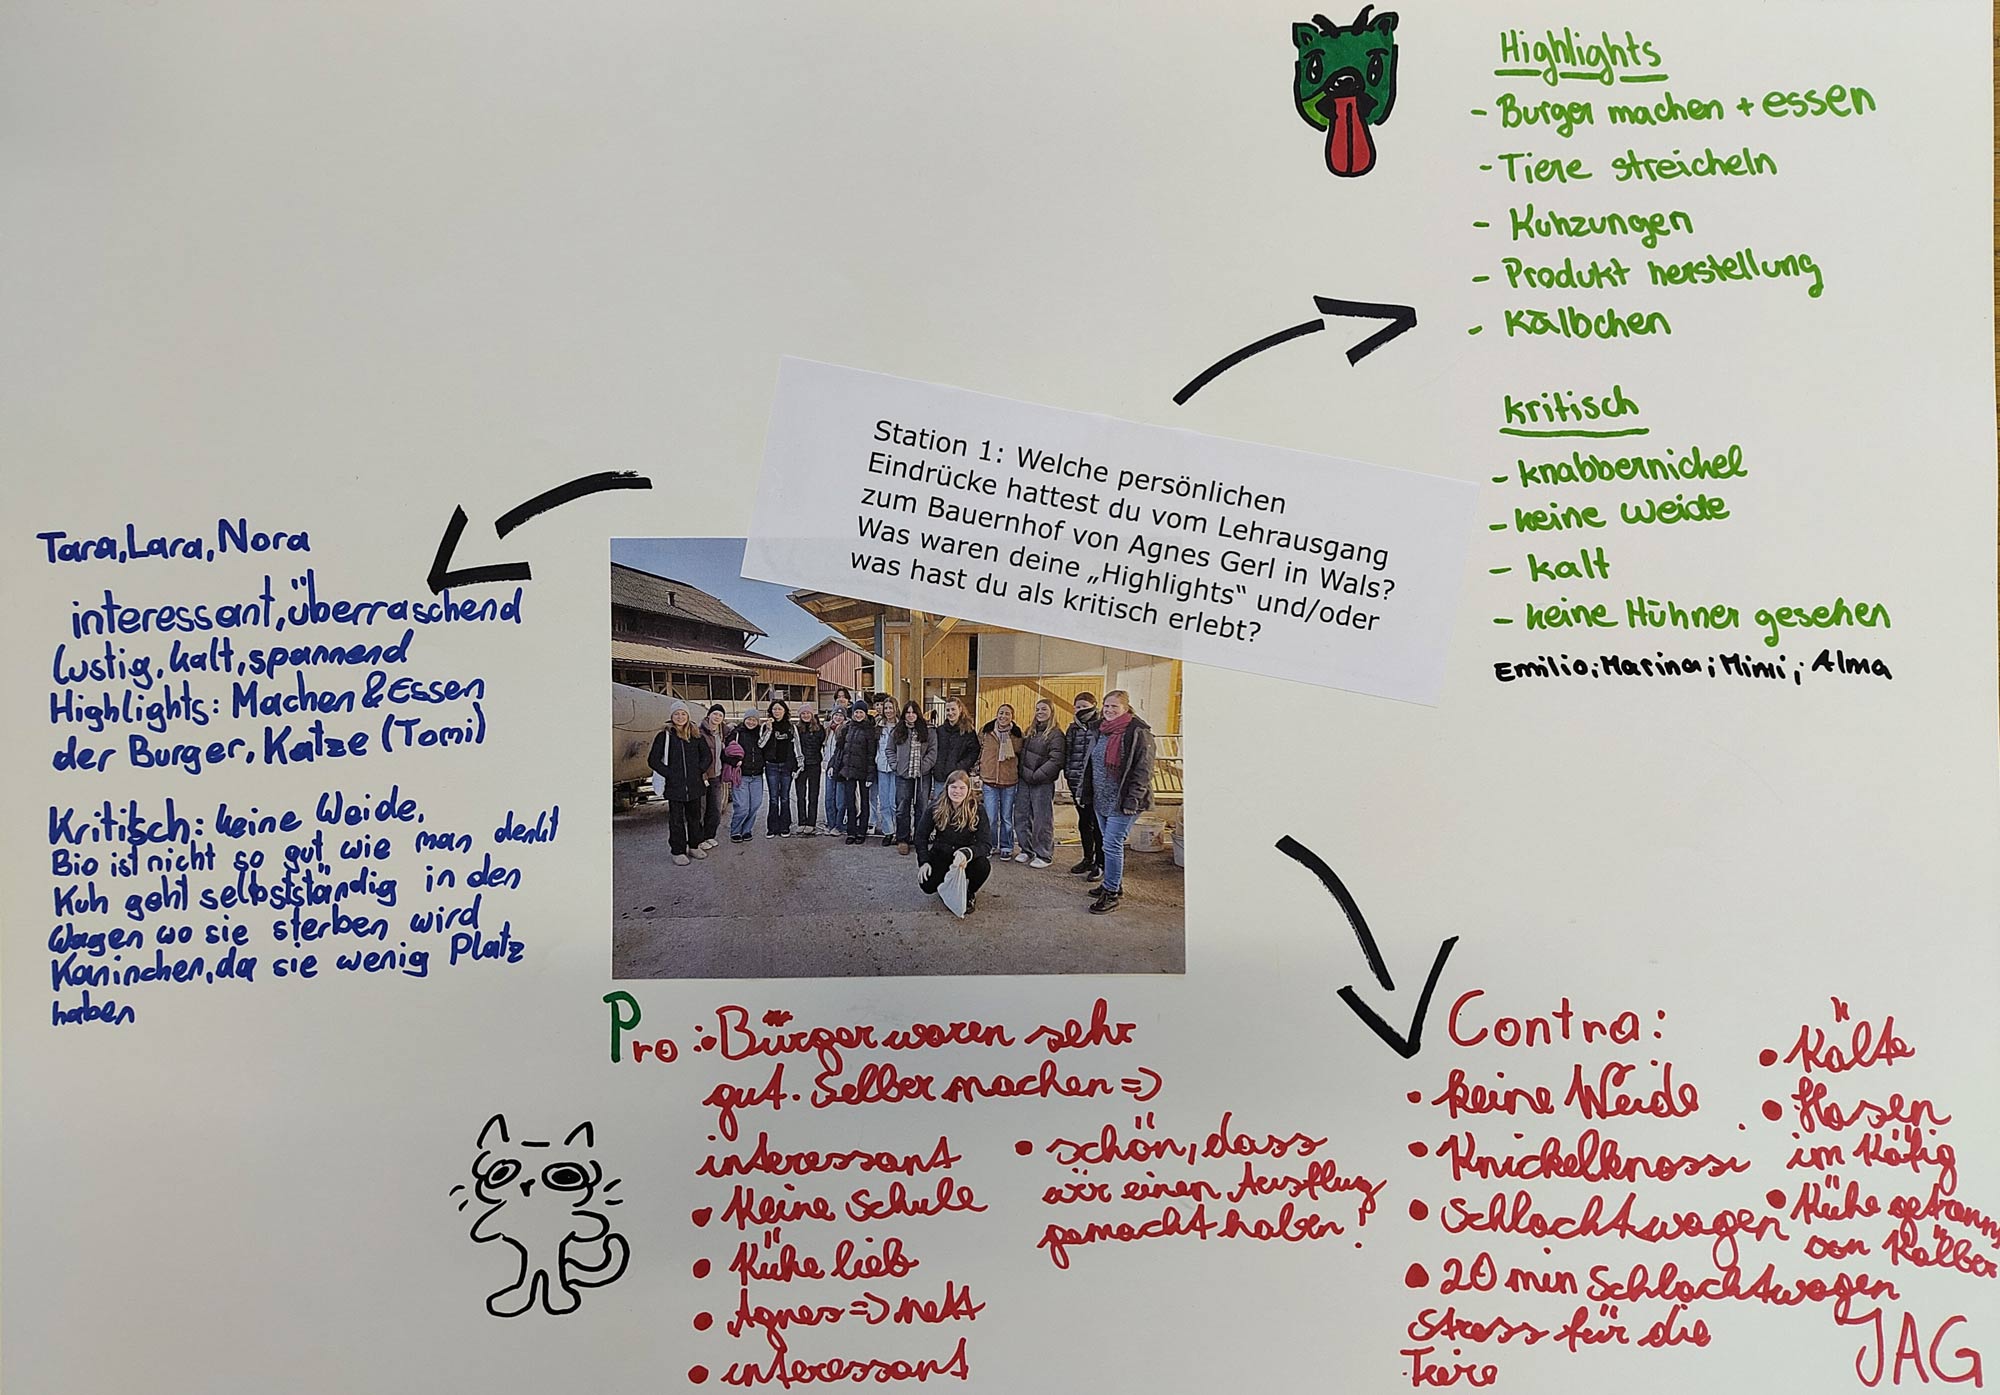 Station 1: Welche persönlichen
Eindrücke hattest du vom Lehrausgang
zum Bauernhof von Agnes Gerl in Wals?
Was waren deine „Highlights“ und/oder
was hast du als kritisch erlebt?
Highlights
- Burger machen + essen
- Tiere streicheln
- Kuhzungen
- Produkt herstellung
- Kälbchen
kritisch
- knabbernickel
- keine Weide
- kalt
- keine Hühner gesehen
Emilio; Marina; Mimi; Alma
Tara, Lara, Nora
interessant, überraschend
lustig, kalt, spannend
Highlights: Machen & Essen
der Burger, Katze (Tomi)
Kritisch: keine Weide,
Bio ist nicht so gut wie man denkt
Kuh geht selbstständig in den
Wagen wo sie sterben wird
Kaninchen, da sie wenig Platz
haben
Pro: • Burger waren sehr
gut. Selber machen =>
interessant
• Keine Schule
• Kühe lieb
• Agnes => nett
• interessant
• schön, dass
wir einen Ausflug
gemacht haben!
Contra:
• keine Weide
• Knickelknossi
• Schlachtwagen
• 20 min Schlachtwagen
Stress für die
Tiere
• Kälte
• Hasen
im Käfig
• Kühe getrennt
von Kälber
JAG